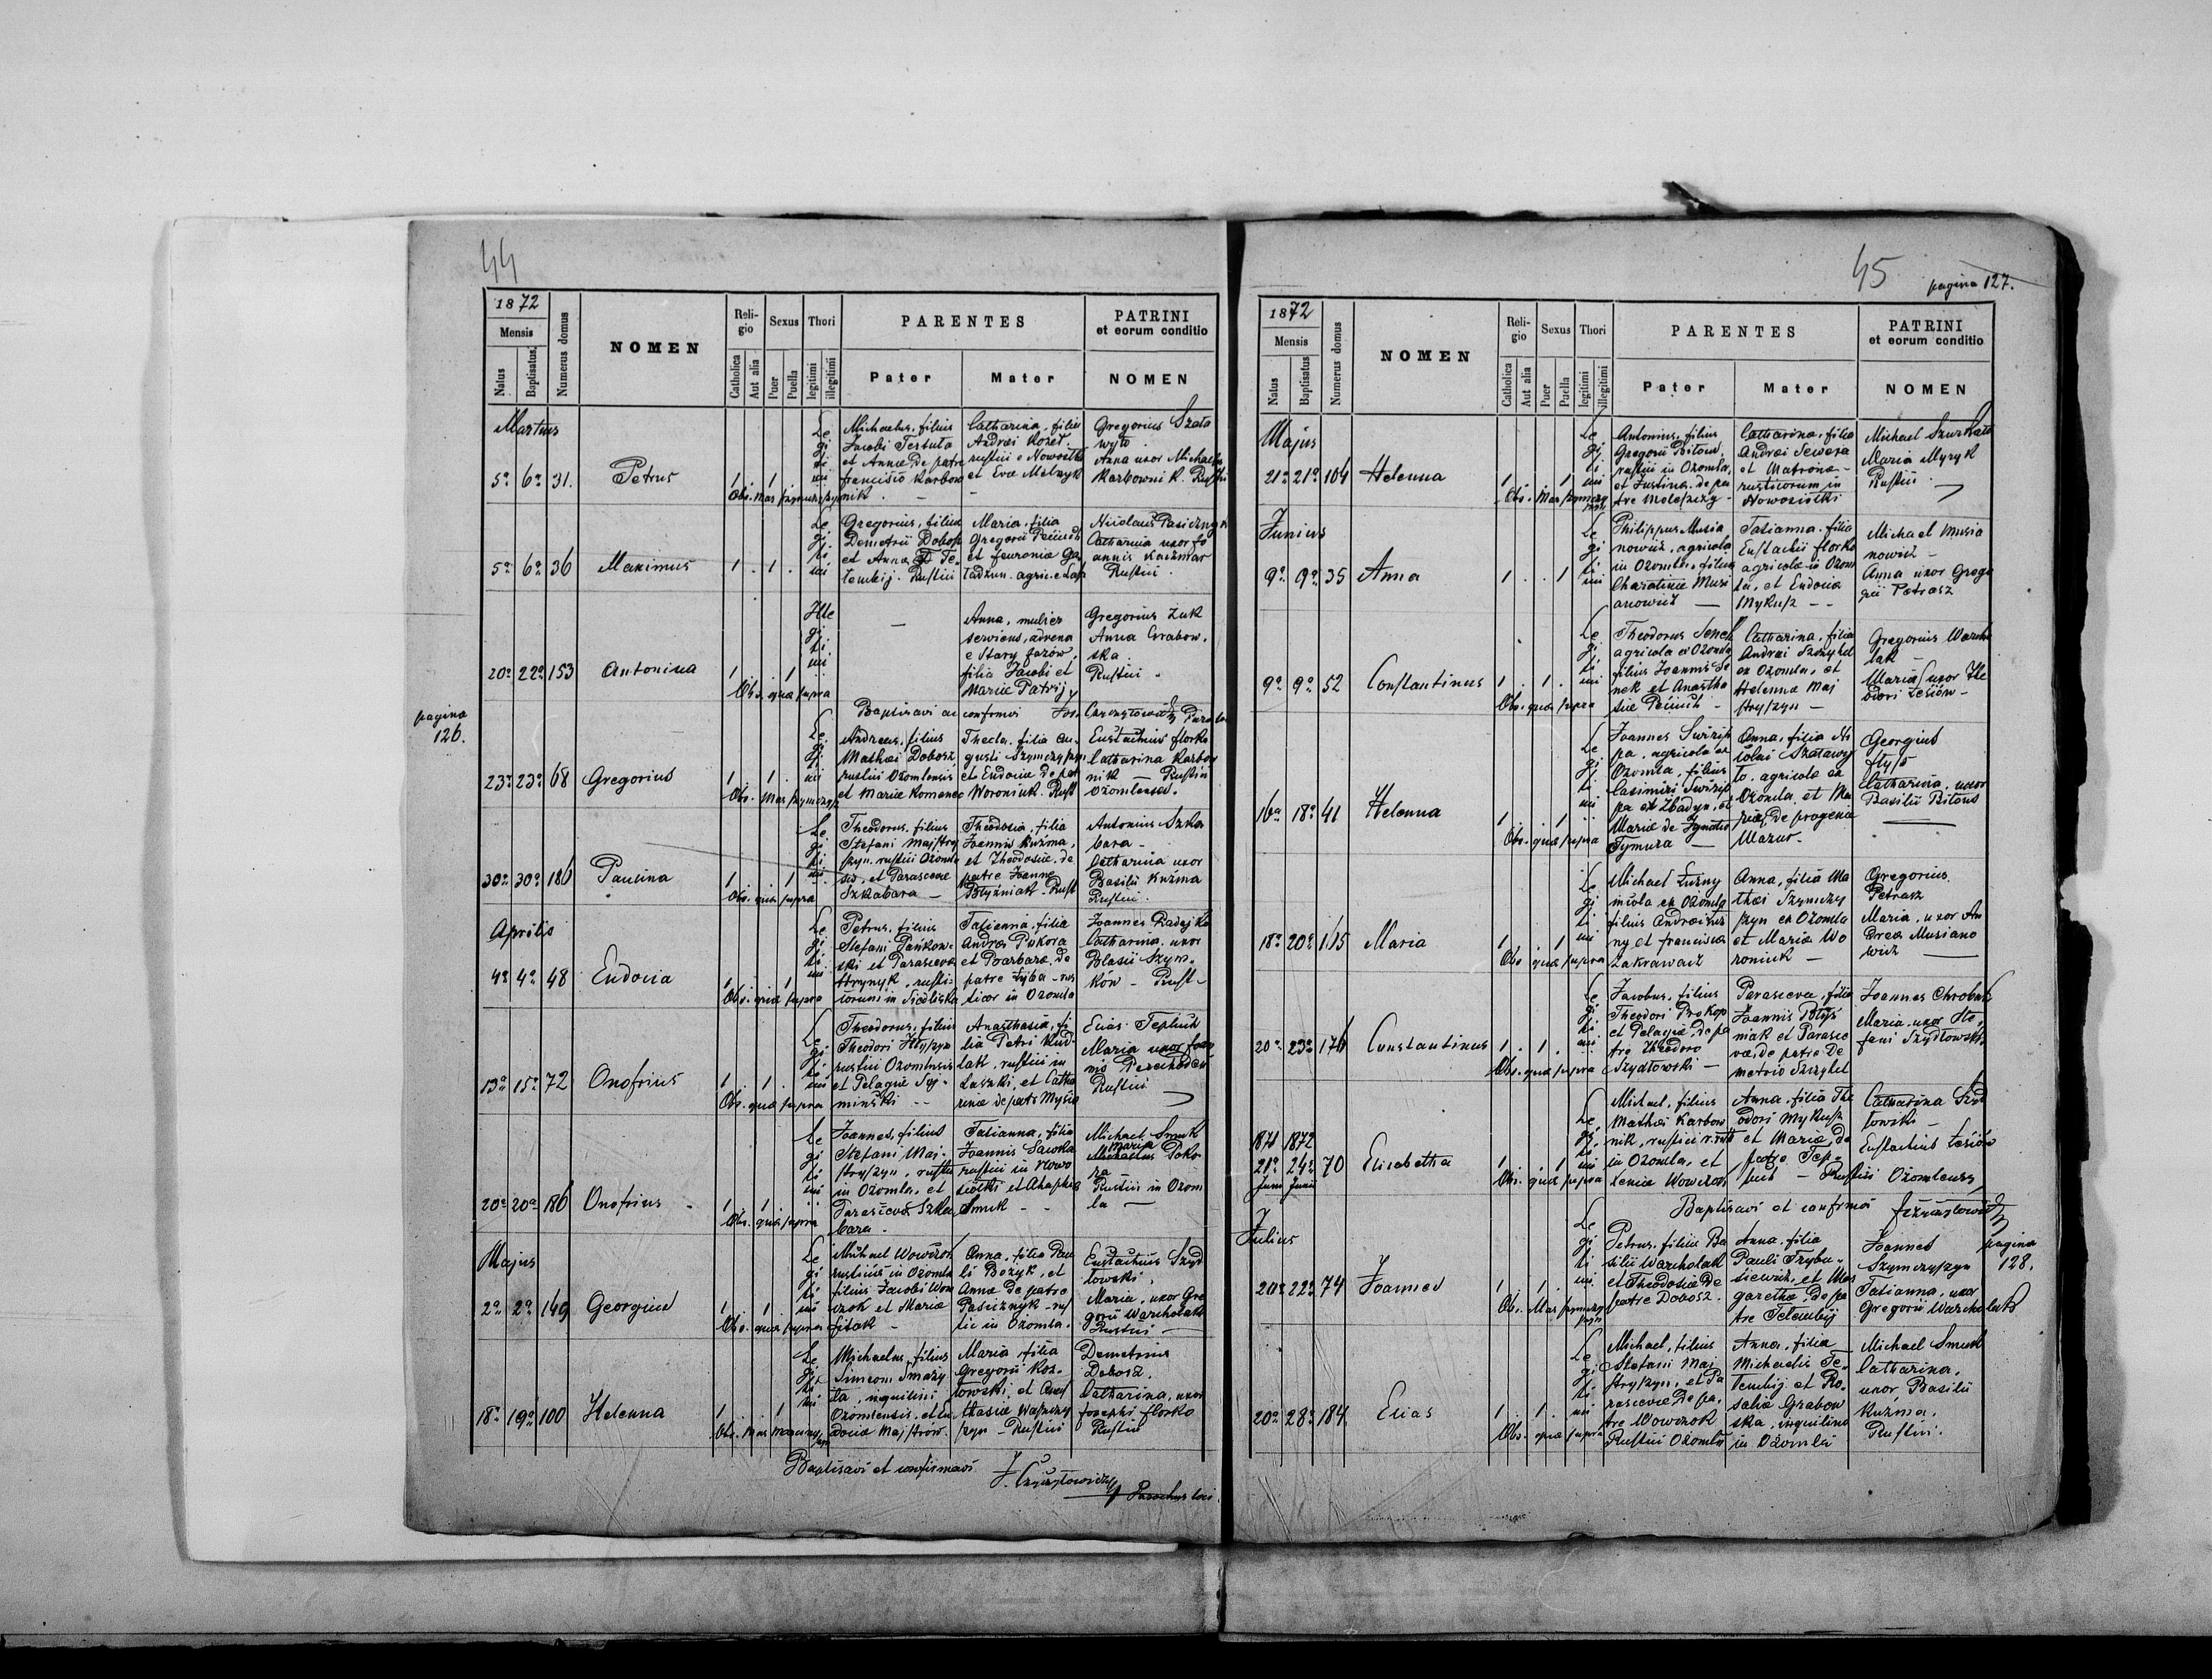 44
1872
Mensis
Natus
Baptisatus
Numerus domus
NOMEN
Reli-
gio
Catholica
Aut alia
Sexus
Puer
Puella
Thori
legitimi
illegitimi
PARENTES
Pater
Mater
PATRINI
et eorum conditio
NOMEN
Martius
5a 6a 31. Petrus
1 . 1 .
Le
gi
ti
mi
Michaelus, filius
Jacobi Tersuta
et Annæ de patre
francisco Karbow
nik . —
Catharina, filia
Andræi Kozeł.
rustici e Nowosiółki
et Evæ Melnyk
Gregorius Szata
wyto
Anna uxor Michaelis
Karbowni k. Rustici
Obs. Mar Szymczyszyn
5a 6a 36 Maximus
1 . 1 .
Le
gi
ti
mi
Gregorius, filius
Demetrii Dobosz
et Anna Te-
lembij. Rustici
Maria, filia
Gregorii
et feuroniæ Ga
Nicolaus Pasicznyk
Catharina uxor Jo
annis Kaczmar
Rustici
20a 22a 153 Antonina
1 . . 1
Ille
gi
ti
mi
—
Anna, mulier
serviens, advena
e Stary Jazów,
filia Jacobi et
Mariæ Patrij
Gregorius Żuk
Anna Grabow.
ska .
Rustici .
Obs. quæ supra
Baptisavi ac confirmavi
pagina
126.
23a 23a 68 Gregorius
1 . 1 .
Le
gi
ti
mi
Andreas, filius
Mathæi Dobosz
rustici Ozomlensis
et Mariæ Romanec
Thecla, filia Au-
gusti Szymczyszyn
et Eudociæ de pat
Woroniuk. Rust
Eustachius florko
Catharina Karbow
nik — Rustici
Ozomlenses.
Obs. Mar Szymczysz
30a 30a 186 Paulina
1 . . 1
Le
gi
ti
mi
Theodorus, filius
Stefani Majstry
szyn. rustici Ozomlen
sis, et Parascevæ
Szkabara —
Theodosia, filia
Joannis Kuźma,
et Theodosiæ, de
patre Joanne
Blyźniak - Rust
Antonius Szka
bara —
Catharina uxor
Basilii Kuźma
Rustici.
Obs. quæ supra
Aprilis
4a 4a 48 Eudocia
1 . . 1
Le
gi
ti
mi
Petrus, filius
Stefani Pańkow-
ski et Parasceva
Hrynyk, rusti-
corum in Siedliska
Tatianna, filia
Andreæ Pokora
et Barbaræ, de
patre Łyba - rus
ticor in Ozomla
Joannes Radejko
Catharina, uxor
Blasii Szym-
ków — Rust —
Obs. quæ supra
13a 15a 72 Onofrius
1 . 1 .
Le
gi
ti
mi
Theodorus, filius
Theodori
rustici Ozomlensis
et Pelagiæ Sy-
miński — —
Anasthasia, fi
lia Petri Kud-
lak, rustici in
Laszki, et Catha
rinæ de patr Mysia
Elias Tepluch
Maria uxor Joan
nis
Rustici —
Obs. quæ supra
20a 20a 186 Onofrius
1 . 1 .
Le
gi
ti
mi
Joannes, filius
Stefani Maj-
stryszyn, rustic
in Ozomla, et
Parasceva Szka
bara —
Tatianna, filia
Joannis Sawka
rustici in Nowo
siółki et Ahaphia
Smuk — —
Michael Smuk
Maria
Poko-
ra —
Rustici in Ozom
la —
Obs. quæ supra
Majus
2a 2a 149 Georgius
1 . 1 .
Le
gi
ti
mi
Michael Wowczok
rusticus in Ozomla
filius Jacobi Wow
czok et Mariæ
fitak —
Anna, filia Pau
li Bożyk, et
Annæ de patre
Pasicznyk - rus
tic in Ozomla.
Eustachius Szyd
łowski,
Maria, uxor Gre
gorii Warcholak
Rustici —
Obs. quæ supra
18a 19a 100 Helenna
1 . . 1
Le
gi
ti
mi
Michaelus, filius
Simeoni Smazy
la, inquilini
Ozomlensis, et Eu
dociæ Majstrow.
Maria filia
Gregorii Koz-
łowski, et Anas
thasiæ Waszczy
szyn - Rustici
Demetrius
Dobosz,
Catharina, uxor
Josephi florko
Rustici
Baptisavi et confirmavi
J. Czyrzłowicz
Parochus loci
45
pagina 127.
1872
Mensis
Natus
Baptisatus
Numerus domus
NOMEN
Reli-
gio
Catholica
Aut alia
Sexus
Puer
Puella
Thori
legitimi
illegitimi
PARENTES
Pater
Mater
PATRINI
et eorum conditio
NOMEN
Majus
21a 21a 104 Helenna
1 . . 1
Le
gi
ti
mi
Antonius, filius
Gregorii Bitous,
rustici in Ozomla,
et Justina, de pa
tre Moloszczy -
Catharina, filia
Andræi Sewera
et Matronæ -
rusticorum in
Nowosiółki
Michael Szurkało
Maria Myzyk
Rustici .
Obs. Mar Szymczy
szyn
Junius
9a 9a 35 Anna
1 . . 1
Le
gi
ti
mi
Philippus Musia
nowicz, agricola
in Ozomla, filius
Charatinæ Musi
anowicz —
Tatianna, filia
Eustachii florko
agricolæ in Ozom
la, et Eudocia
Mykusz — —
Michael Musia
nowicz —
Anna uxor Grego
rii Petrasz
9a 9a 52 Constantinus
1 . 1 .
Le
gi
ti
mi
Theodorus Senek
agricola ex Ozomla
filius Joannis Se
nek et Anastha
siæ —
Catharina, filia
Andræi Szczyhel
ex Ozomla, et
Helennæ Maj
stryszyn —
Gregorius Warcho
lak —
Maria, uxor The
odori Łesiów —
Obs. quæ supra
16a 18a 41 Helenna
1
Le
gi
ti
mi
Joannes Swirzy
pa, agricola ex
Ozomla, filius
Casimiri Swirzy
pa ex Zbadyn, et
Mariæ de Ignatio
Tymura —
Anna, filia Ni
colai Szatawy
to, agricola ex
Ozomla, et Ma
riæ, de progenie
Mazur —
Georgius
Hyś
Catharina, uxor
Basilii Bitous
Obs. quæ supra
18a 20a 115 Maria
1 . . 1
Le
gi
ti
mi
Michael Łuzny
incola ex Ozomla
filius Andræi Łuz
ny et francisca
Zakrawacz
Anna, filia Ma
thæi Szymczy
szyn ex Ozomla
et Mariæ Wo
roniuk —
Gregorius
Petrasz
Maria, uxor An
dreæ Musiano
wicz —
Obs quæ supra
20a 23a 176 Constantinus
1 . 1 .
Le
gi
ti
mi
Jacobus, filius
Theodori Prokop
et Pelagiæ, de pa
tre Theodoro
Szydłowski —
Parasceva, filia
Joannis Blyź
niak et Parasce
væ, de patre De
metrio Szczyhel
Joannes Chrobak
Maria, uxor Ste
fani Szydłowski.
Obs. quæ supra
1871 1872
21a 24a 70 Elisabetha
Juni Junii
1 . . 1
Le
gi
ti
mi
Michael, filius
Mathæi Karbow
nik, rustici
in Ozomla, et
Xeniæ Wowczok
Anna, filia The
odori Mykusz
et Mariæ, de
patre Tep-
luch —
Catharina Szyd
łowski —
Eustachius Łesiów
Rustici Ozomlenses
Obs. quæ supra
Baptisavi et confirmavi
Julius
pagina
128.
20a 22a 74 Joannes
1 . 1 .
Le
gi
ti
mi
Petrus, filius Ba
silii Warcholak
et Theodosiæ de
patre Dobosz .
Anna, filia
Pauli Trybu-
siewicz, et Mar
garethæ, de pa
tre Telembij
Joannes
Szymczyszyn
Tatianna, uxor
Gregorii Warcholak
Obs. Mar Szymczy
szyn
20a 28a 184 Elias
1 . 1 .
Le
gi
ti
mi
Michael, filius
Stefani Maj
stryszyn, et Pa
rasceviæ de pa-
tre Wowczok
Rustici Ozomla
Anna, filia
Michaelis Te-
lembij, et Ro-
saliæ Grabow
ska, inquilina
in Ozomla
Michael Smuk
Catharina,
uxor Basilii
Kuźma.
Rustici.
Obs. quæ supra